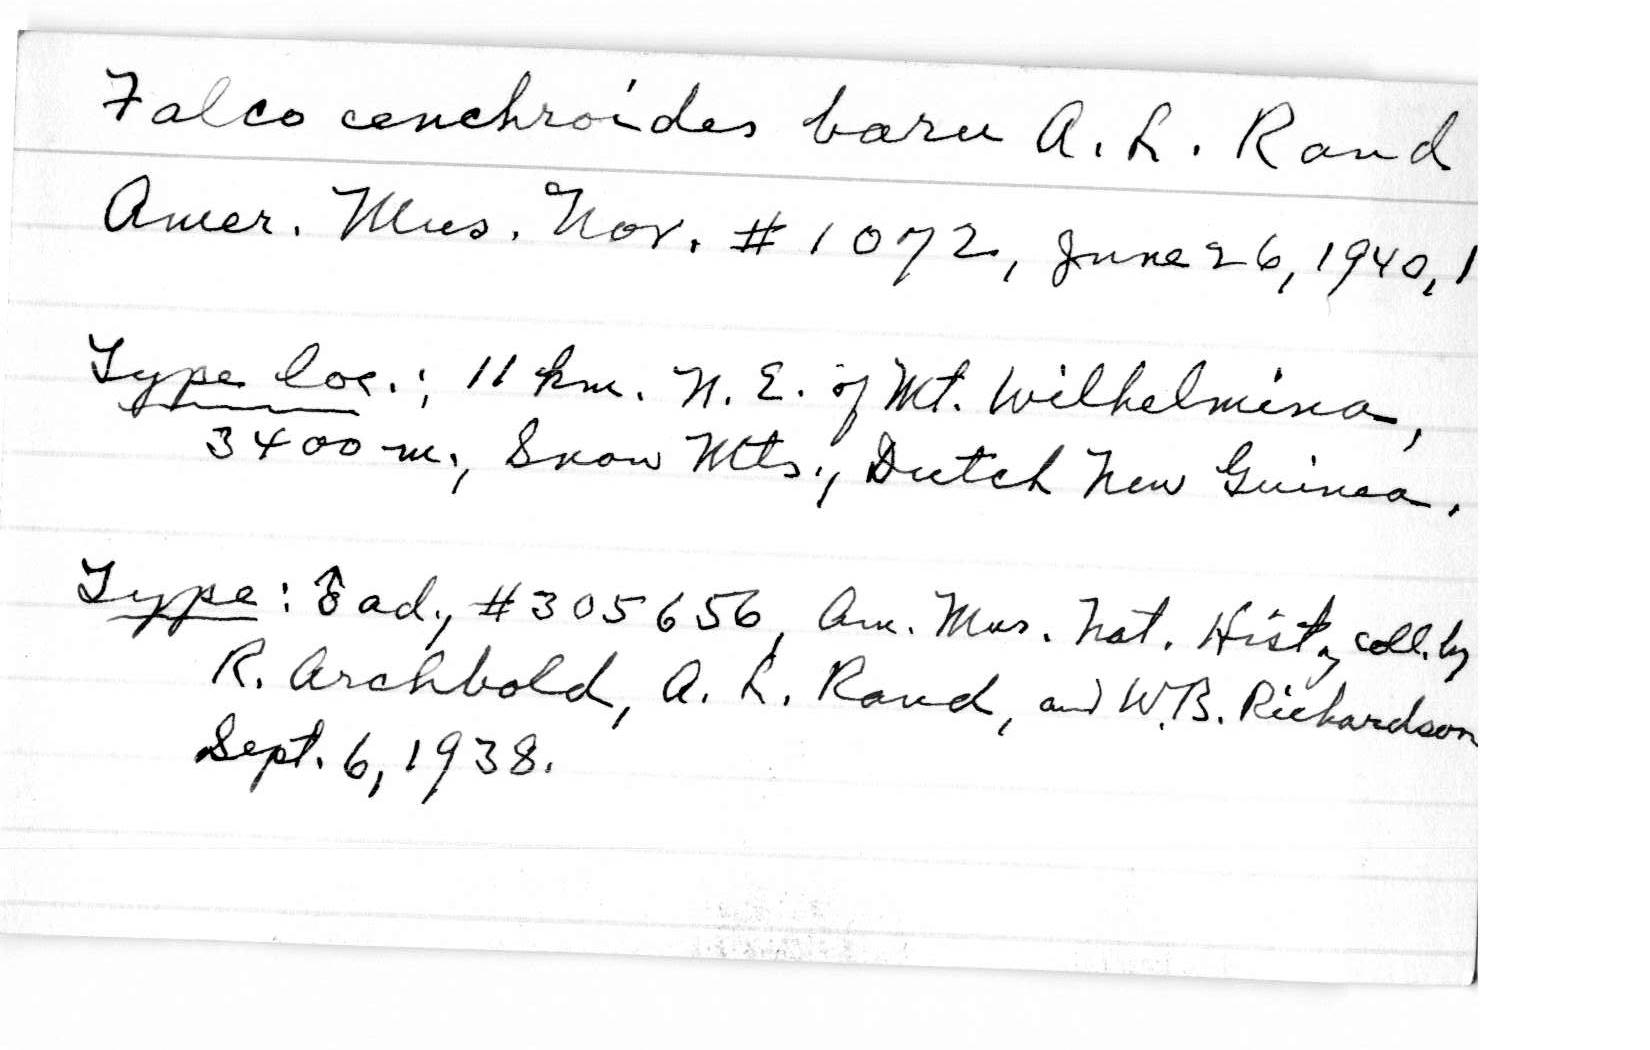 Falco cenchroides baru A. L. Rand
Amer. Mus. Nov. #1072, June 26, 1940, 1
Type loc.: 11 km. N. E. of Mt. Wilhelmina,
3400 m., Snow Mts., Dutch New Guinea.
Type: ♂ ad., #305656, Am. Mus. Nat. Hist., coll. by
R. Archbold, A. L. Rand, and W. B. Richardson
Sept. 6, 1938.